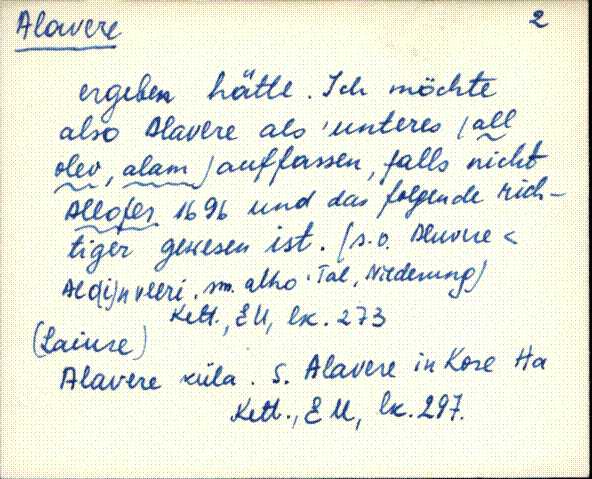 Alavere 2
ergeben hätte. Ich möchte
also Alavere als 'unteres (all
olev, alam) auffassen, falls nicht
Allofer 1696 und das folgende rich-
tiger gewesen ist. (s.o. Aluvere <
Alo(i)n veeri, sm. alho 'Tal, Niederung)
Kett., EU, lk. 273
(Laiuse)
Alavere küla. S. Alavere in Kose Ha
Kett., EU, lk. 297.